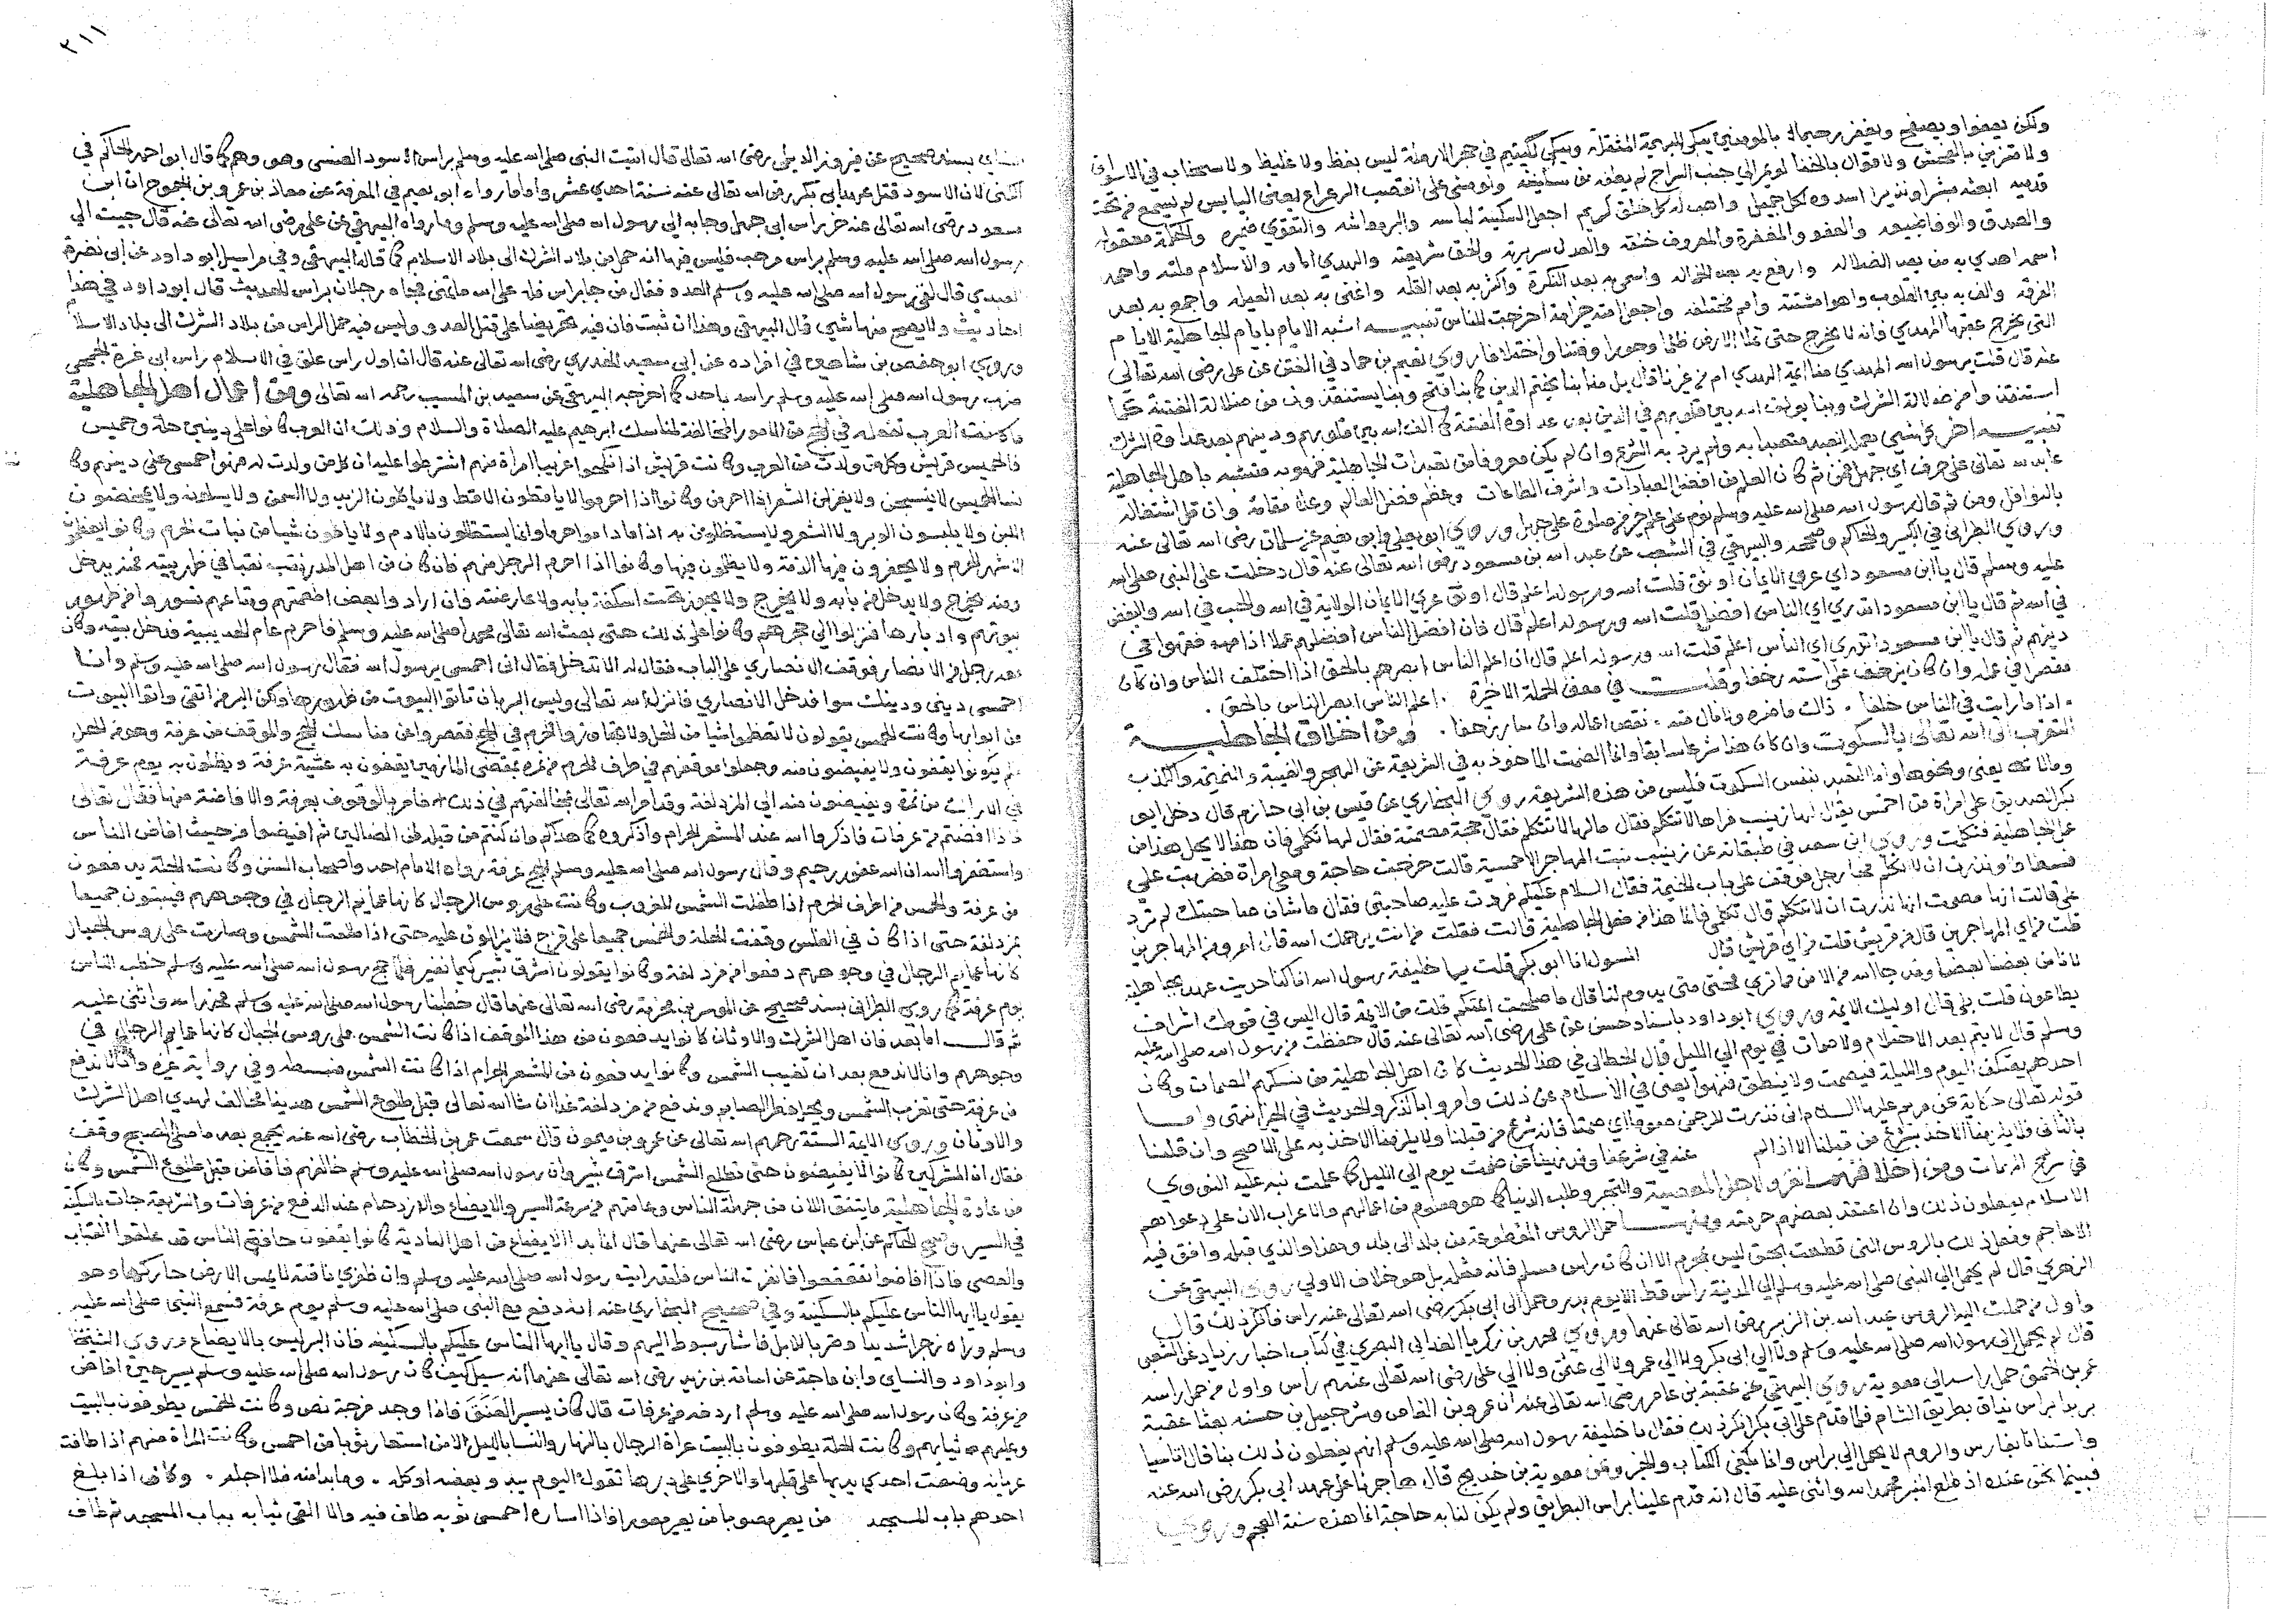 ولكن يعفوا ويصفح ويغفر رحيما بالمومنين يبكي للبهيمة المثقلة ويبكي لليتيم في حجر الارملة ليس بفظ ولا غليظ ولا سخاب في الاسواق
ولا متزين بالفحش ولا قوال بالخنا لو يمر الي جنب السراج لم يطفه من سكينته ولو يمشي على القصب الرعراع يعني اليابس لم يسمع من تحت
قدميه ابعثه مبشرا ونذيرا اسدده لكل جميل واهب له كل خلق كريم اجعل السكينة لباسه والبر شعاره والتقوي ضميره والحكمة معقوله
والصدق والوفا طبيعته والعفو والمغفرة والمعروف خلقه والعدل سريرته والحق شريعته والهدي امامه والاسلام ملته واحمد
اسمه اهدي به من بعد الضلالة وارفع به بعد الخمالة واسمي به بعد النكرة واكثر به بعد القلة واغني به بعد العيلة واجمع به بعد
الفرقة والف به بين القلوب واهوا مشتتة وامم مختلفة واجعل امته خير امة اخرجت للناس تنبيه اشبه الايام بايام الجاهلية الايام
التي يخرج عقبها المهدي فانه لا يخرج حتى تملا الارض ظلما وجورا وفتنا واختلافا روي نعيم بن حماد في الفتن عن علي رضي الله تعالي
عنه قال قلت يرسول الله المهدي منا ايمة الهدي ام من غيرنا قال بل منا بنا يختم الدين كما بنا فتح وبنا يستنقذون من ضلالة الفتنة كما
استنقذوا من ضلالة الشرك وبنا يولف الله بين قلوبهم في الدين بعد عداوة الفتنة كما الف الله بين قلوبهم ودينهم بعد عداوة الشرك
تنبيه اخر كل شي يعمل بقصد متعبدا به ولم يرد به الشرع وان لم يكن معروفا من تعبدات الجاهلية فهو متشبه باهل الجاهلية
عابد لله تعالى على حرف اي جهل فمن ثم كان العلم من افضل العبادات واشرف الطاعات وعظم فضل العالم وعلا مقامه وان قل اشتغاله
بالنوافل ومن ثم قال رسول الله صلى الله عليه وسلم نوم على علم خير من صلاة على جهل وروي ابو يعلي وابو نعيم عن سلمان رضي الله تعالى عنه
وروي الطبراني في الكبير والحاكم وصححه والبيهقي في الشعب عن عبد الله بن مسعود رضي الله تعالى عنه قال دخلت على النبي صلى الله
عليه وسلم قال يا ابن مسعود اي عري الايمان اوثق قلت الله ورسوله اعلم قال اوثق عري الايمان الولاية في الله والحب في الله والبغض
في الله ثم قال يا ابن مسعود اتدري اي الناس افضل قلت الله ورسوله اعلم قال فان افضل الناس افضلهم عملا اذا فقهوا في
دينهم ثم قال يا ابن مسعود اتدري اي الناس اعلم قلت الله ورسوله اعلم قال ان اعلم الناس ابصرهم بالحق اذا اختلف الناس وان كان
مقصرا في عمله وان كان يزحف على استه زحفا وقلت في معنى الجملة الاخيرة . اعلم الناس ابصر الناس بالحق .
. اذا ما رايت في الناس خلفا . ذاك ما ضره ولا نال منه . نقص اعماله وان سار زحفا . ومن اخلاق الجاهلية
التقرب الى الله تعالى بالسكوت وان كان هذا شرعا سابقا واما الصمت الماخوذ به في الشريعة عن الهجر والغيبة والنميمة والكذب
ومالا يعني ونحوها واما التعبد بنفس السكوت فليس من هذه الشريعة روي البخاري عن قيس بن ابي حازم قال دخل ابو
بكر الصديق على امراة من احمس يقال لها زينب فراها لا تتكلم فقال مالها لا تتكلم فقال حجت مصمتة فقال لها تكلمي فان هذا لا يحل هذا من
عمل الجاهلية فتكلمت وروي ابن سعد في طبقاته عن زينب بنت المهاجر الاحمسية قالت خرجت حاجة ومعي امراة فضربت علي
فسطاطا ونذرت ان لا اتكلم فجا رجل فوقف على باب الخيمة فقال السلام عليكم فردت عليه صاحبتي فقال ما شان صاحبتك لم ترد
علي قالت انها مصمت انها نذرت ان لا تتكلم قال تكلمي فانما هذا من فعل الجاهلية قالت فقلت من انت يرحمك الله قال امرو من المهاجرين
قلت من اي المهاجرين قال من قريش قلت من اي قريش قال انك لسول انا ابو بكر قلت يا خليفة رسول الله انا كنا حديث عهد بجاهلية
لا يامن بعضنا بعضا وقد جا الله من الامن ما تري فحتى متى يدوم لنا قال ما صلحت ايمتكم قلت من الايمة قال اليس في قومك اشراف
يطاعون قلت بلى قال اوليك الايمة وروي ابو داود باسناد حسن عن علي رضي الله تعالى عنه قال حفظت من رسول الله صلى الله عليه
وسلم قال لا يتم بعد الاحتلام ولا صمات يوم الي الليل قال الخطابي في هذا الحديث كان اهل الجاهلية من نسكهم الصمات وكان
احدهم يعتكف اليوم والليلة فيصمت ولا ينطق فنهوا يعني في الاسلام عن ذلك وامروا بالذكر والحديث في الخير انتهى واما
قوله تعالى حكاية عن مريم عليها السلام اني نذرت للرحمن صوما اي صمتا فانه شرع من قبلنا ولا يلزمنا الاخذ به على الاصح وان قلنا
بالثاني فلا يلزمنا الاخذ بشرع من قبلنا الا اذا لم عنه في شرعنا وقد نهينا عن صمت يوم الي الليل كما علمت نبه عليه النووي
في شرح المهذب ومن اخلاقهم السفر ولاجل المعصية والتجبر وطلب الدنيا كما هو معلوم من اعمالهم وانا عراب الان على دعواهم
الاسلام يفعلون ذلك وان اعتقد بعضهم حرمته ومنها حمل الروس المقطوعة من بلد الى بلد وهذا والذي قبله وافق فيه
الاعاجم وفعل ذلك بالروس التي قطعت بحق ليس بمحرم الا ان كان راس مسلم فانه مثله بل هو خلاف الاولي روي البيهقي عن
الزهري قال لم يحمل الي النبي صلى الله عليه وسلم الي المدينة راس قط الا يوم بدر وحمل الى ابي بكر رضي الله تعالى عنه راس فانكر ذلك قال
واول من حملت اليه الروس عبد الله بن الزبير رضي الله تعالى عنهما وروي محمد بن زكريا الغلابي البصري في كتاب اخبار زياد عن الشعبي
قال لم يحمل الى رسول الله صلى الله عليه وسلم ولا الي ابي بكر ولا الي عمر ولا الي عثمن ولا الي علي رضي الله تعالى عنهم راس واول من حمل راسه
عمر بن الحمق حمل راسه الي معوية روي البيهقي عن عقبة بن عامر رضي الله تعالى عنه ان عمرو بن العاص وشرحبيل بن حسنه بعثا عقبة
بريدا براس يناق بطريق الشام فلما قدم على ابي بكر انكر ذلك فقال يا خليفة رسول الله صلى الله عليه وسلم انهم يفعلون ذلك بنا قال افاستنانا
بفارس والروم لا يحمل الي براس وانما يكفي الكتاب والخبر وعن معوية بن خديج قال هاجرنا على عهد ابي بكر رضي الله عنه
فبينما نحن عنده اذ طلع المنبر فحمد الله واثنى عليه قال انه قدم علينا براس البطريق ولم يكن لنا به حاجة انما هذه سنة العجم وروي
٢١١
النساي بسند صحيح عن فيروز الديلمي رضي الله تعالى قال اتيت النبي صلى الله عليه وسلم براس الاسود العنسي وهو وهم كما قال ابو احمد الحاكم في
الكنى لان الاسود قتل بعهد ابي بكر رضي الله تعالى عنه سنة احدي عشر واما ما رواه ابو نعيم في المعرفة عن معاذ بن عمرو بن الجموح ان ابن
مسعود رضي الله تعالى عنه حز براس ابي جهل وجا به الي رسول الله صلى الله عليه وسلم وما رواه البيهقي عن علي رضي الله تعالى عنه قال جيت الي
رسول الله صلى الله عليه وسلم براس مرحب فليس فيهما انه حمل من بلاد الشرك الى بلاد الاسلام كما قاله البيهقي وفي مراسيل ابو داود عن ابي نضرة
العبدي قال لقي رسول الله صلى الله عليه وسلم العدو فقال من جا براس فله على الله ما تمنى فجاه رجلان براس الحديث قال ابو داود في هذا
احاديث ولا يصح منها شي قال البيهقي وهذا ان ثبت فان فيه تحريضا على قتل العدو وليس فيه حمل الراس من بلاد الشرك الى بلاد الاسلام
وروي ابو حفص بن شاهين في افراده عن ابي سعيد الخدري رضي الله تعالى عنه قال ان اول راس علق في الاسلام راس ابي عزة الجمحي
ضرب رسول الله صلى الله عليه وسلم راسه باحد كما اخرجه البيهقي عن سعيد بن المسيب رحمه الله تعالى ومن اعمال اهل الجاهلية
ما كانت العرب تفعله في الحج من الامور المخالفة لمناسك ابرهيم عليه الصلاة والسلام وذلك ان العرب كانوا على دينين حلة وحميس
فالحميس قريش وكل من ولدت من العرب وكانت قريش اذا انكحوا عربيا امراة منهم اشترطوا عليه ان كل من ولدت له فهو احمسي على دينهم وكا
نسا الحميس لا ينسجن ولا يغزلن الشعر اذا احرمن وكانوا اذا احرموا لا ياقطون الاقط ولا ياكلون الزبد ولا السمن ولا يسلونه ولا يمخضون
اللبن ولا يلبسون الوبر ولا الشعر ولا يستظلون به اذا ما داموا حرما وانما يستظلون بالادم ولا ياكلون شيا من نبات الحرم وكانوا يعظمون
الاشهر الحرم ولا يخفرون فيها الذمة ولا يظلمون فيها وكانوا اذا احرم الرجل منهم فان كان من اهل المدر نقب نقبا في ظهر بيته فمنه يدخل
ومنه يخرج ولا يدخل من بابه ولا يخرج ولا يجوز تحت اسكفة بابه ولا عارضته فان اراد وابعض اطعمتهم ومتاعهم تسوروا من ظهور
بيوتهم وادبارها فنزلوا الي حجرهم وكانوا على ذلك حتى بعث الله تعالى محمدا صلى الله عليه وسلم فاحرم عام الحديبية فدخل بيته وكان
معه رجل من الانصار فوقف الانصاري على الباب فقال له الا تدخل فقال اني احمسي يرسول الله فقال رسول الله صلى الله عليه وسلم وانا
احمسي ديني ودينك سوا فدخل الانصاري فانزل الله تعالى وليس البر بان تاتوا البيوت من ظهورها ولكن البر من اتقى واتوا البيوت
من ابوابها وكانت الحمس يقولون لا تعظموا شيا من الحل ولا تجاوزوا الحرم في الحج فقصروا عن مناسك الحج والموقف من عرفة وهو من الحل
فلم يكونوا يقفون ولا يفيضون منه وجعلوا موقفهم في طرف الحرم من نمرة بمفضى المازمين يقفون به عشية عرفة ويظلون به يوم عرفة
في الاراك من نمرة ويفيضون منه الي المزدلفة وقد امر الله تعالى بمخالفتهم في ذلك فامر بالوقوف بعرفة والافاضة منها فقال تعالى
فاذا افضتم من عرفات فاذكروا الله عند المشعر الحرام واذكروه كما هداكم وان كنتم من قبله لمن الضالين ثم افيضوا من حيث افاض الناس
واستغفروا الله ان الله غفور رحيم وقال رسول الله صلى الله عليه وسلم الحج عرفة رواه الامام احمد واصحاب السنن وكانت الحلة يدفعون
من عرفة والحمس من اطراف الحرم اذا طفلت الشمس للغروب وكانت على روس الرجال كانها عمايم الرجال في وجوههم فيبيتون جميعا
بمزدلفة حتى اذا كان في الغلس وقفت الحلة والحمس جميعا على قزح فلا يزالون عليه حتى اذا طلعت الشمس وصارت على روس الجبال
كانها عمايم الرجال في وجوههم دفعوا من مزدلفة وكانوا يقولون اشرق ثبير كيما نغير فلما حج رسول الله صلى الله عليه وسلم خطب الناس
يوم عرفة كما روي الطبراني بسند صحيح عن المسور بن مخرمة رضي الله تعالى عنهما قال خطبنا رسول الله صلى الله عليه وسلم فحمد الله واثنى عليه
ثم قال اما بعد فان اهل الشرك والاوثان كانوا يدفعون من هذا الموقف اذا كانت الشمس على روس الجبال كانها عمايم الرجال في
وجوههم وانا لا ندفع بعد ان تغيب الشمس وكانوا يدفعون من المشعر الحرام اذا كانت الشمس منبسطة وفي رواية غيره وانا لا ندفع
من عرفة حتى تغرب الشمس ويحل فطر الصايم وندفع من مزدلفة غدا ان شا الله تعالى قبل طلوع الشمس هدينا مخالف لهدي اهل الشرك
والاوثان وروي الايمة الستة رحمهم الله تعالى عن عمرو بن ميمون قال سمعت عمر بن الخطاب رضي الله عنه بجمع بعد ما صلى الصبح وقف
فقال ان المشركين كانوا لا يفيضون حتى تطلع الشمس اشرق ثبير وان رسول الله صلى الله عليه وسلم خالفهم فافاض قبل طلوع الشمس وكان
من عادة الجاهلية ما يتفق الان من جهلة الناس وعامتهم من سرعة السير والايضاع والازدحام عند الدفع من عرفات والشريعة جات بالسكينة
في السير وصح الحاكم عن ابن عباس رضي الله تعالى عنهما قال انما بد الايضاع من اهل البادية كانوا يقفون حافتي الناس قد علقوا القعاب
والعصي فاذا افاضوا تقعقعوا فانفرت الناس فلقد رايت رسول الله صلى الله عليه وسلم وان ظفري ناقته لايمس الارض حاركها وهو
يقول يا ايها الناس عليكم بالسكينة وفي صحيح البخاري عنه انه دفع مع النبي صلى الله عليه وسلم يوم عرفة فسمع النبي صلى الله عليه
وسلم وراه زجرا شديدا وضربا للابل فاشار بسوطه اليهم وقال يا ايها الناس عليكم بالسكينة فان البر ليس بالايضاع وروي الشيخان
وابو داود والنساي وابن ماجة عن اسامة بن زيد رضي الله تعالى عنهما انه سيل كيف كان رسول الله صلى الله عليه وسلم يسير حين افاض
من عرفة وكان رسول الله صلى الله عليه وسلم اردفه من عرفات قال كان يسير العنق فاذا وجد فرجة نص وكانت الحمس يطوفون بالبيت
وعليهم ثيابهم وكانت الحلة يطوفون بالبيت عراة الرجال بالنهار والنسا بالليل الا من استعار ثوبا من احمس وكانت المراة منهم اذا طافت
عريانه وضعت احدي يديها على قبلها والاخري على دبرها تقول اليوم يبدو بعضه او كله . وما بدا منه فلا احله . وكان اذا بلغ
احدهم باب المسجد من يعير مصوبا من يعير معورا فاذا اساره احمسي ثوبه طاف فيه والا القى ثيابه بباب المسجد ثم طاف